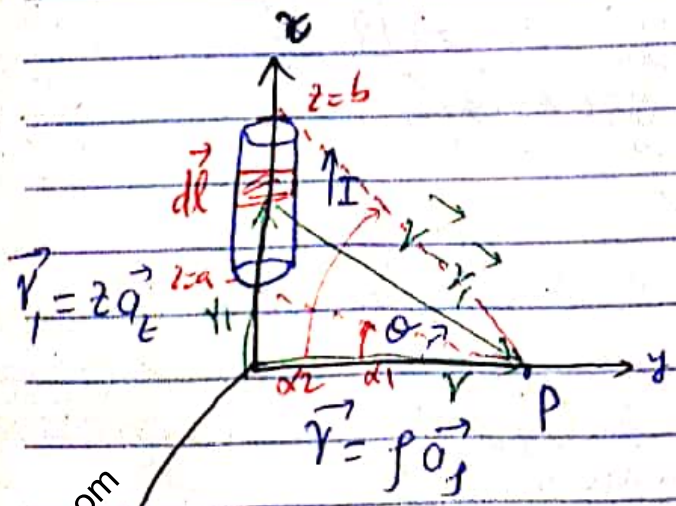 x
z=b
dl⃗
I
r⃗ - r⃗₁
z=a
r⃗₁ = z a⃗z
r₁
θ
α2
α1
r⃗
y
P
r⃗ = ρ a⃗ρ
om